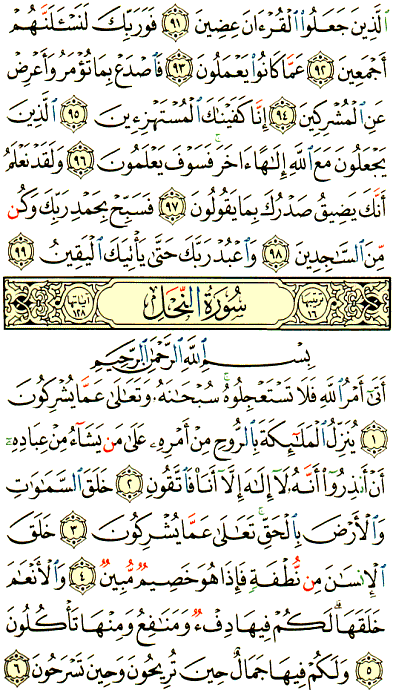 الَّذِينَ جَعَلُوا الْقُرْءَانَ عِضِينَ ﴿٩١﴾ فَوَرَبِّكَ لَنَسْـَٔلَنَّهُمْ
أَجْمَعِينَ ﴿٩٢﴾ عَمَّا كَانُوا يَعْمَلُونَ ﴿٩٣﴾ فَاصْدَعْ بِمَا تُؤْمَرُ وَأَعْرِضْ
عَنِ الْمُشْرِكِينَ ﴿٩٤﴾ إِنَّا كَفَيْنَاكَ الْمُسْتَهْزِءِينَ ﴿٩٥﴾ الَّذِينَ
يَجْعَلُونَ مَعَ اللَّهِ إِلَـٰهًا ءَاخَرَ ۚ فَسَوْفَ يَعْلَمُونَ ﴿٩٦﴾ وَلَقَدْ نَعْلَمُ
أَنَّكَ يَضِيقُ صَدْرُكَ بِمَا يَقُولُونَ ﴿٩٧﴾ فَسَبِّحْ بِحَمْدِ رَبِّكَ وَكُن
مِّنَ السَّـٰجِدِينَ ﴿٩٨﴾ وَاعْبُدْ رَبَّكَ حَتَّىٰ يَأْتِيَكَ الْيَقِينُ ﴿٩٩﴾
ترتيبها ١٦ سُورَةُ النَّحْلِ آياتها ١٢٨
بِسْمِ اللَّهِ الرَّحْمَـٰنِ الرَّحِيمِ
أَتَىٰ أَمْرُ اللَّهِ فَلَا تَسْتَعْجِلُوهُ ۚ سُبْحَـٰنَهُ وَتَعَـٰلَىٰ عَمَّا يُشْرِكُونَ
﴿١﴾ يُنَزِّلُ الْمَلَـٰٓئِكَةَ بِالرُّوحِ مِنْ أَمْرِهِ عَلَىٰ مَن يَشَآءُ مِنْ عِبَادِهِ
أَنْ أَنذِرُوا أَنَّهُ لَآ إِلَـٰهَ إِلَّآ أَنَا۠ فَاتَّقُونِ ﴿٢﴾ خَلَقَ السَّمَـٰوَٰتِ
وَالْأَرْضَ بِالْحَقِّ ۚ تَعَـٰلَىٰ عَمَّا يُشْرِكُونَ ﴿٣﴾ خَلَقَ
الْإِنسَـٰنَ مِن نُّطْفَةٍ فَإِذَا هُوَ خَصِيمٌ مُّبِينٌ ﴿٤﴾ وَالْأَنْعَـٰمَ
خَلَقَهَا ۗ لَكُمْ فِيهَا دِفْءٌ وَمَنَـٰفِعُ وَمِنْهَا تَأْكُلُونَ
﴿٥﴾ وَلَكُمْ فِيهَا جَمَالٌ حِينَ تُرِيحُونَ وَحِينَ تَسْرَحُونَ ﴿٦﴾